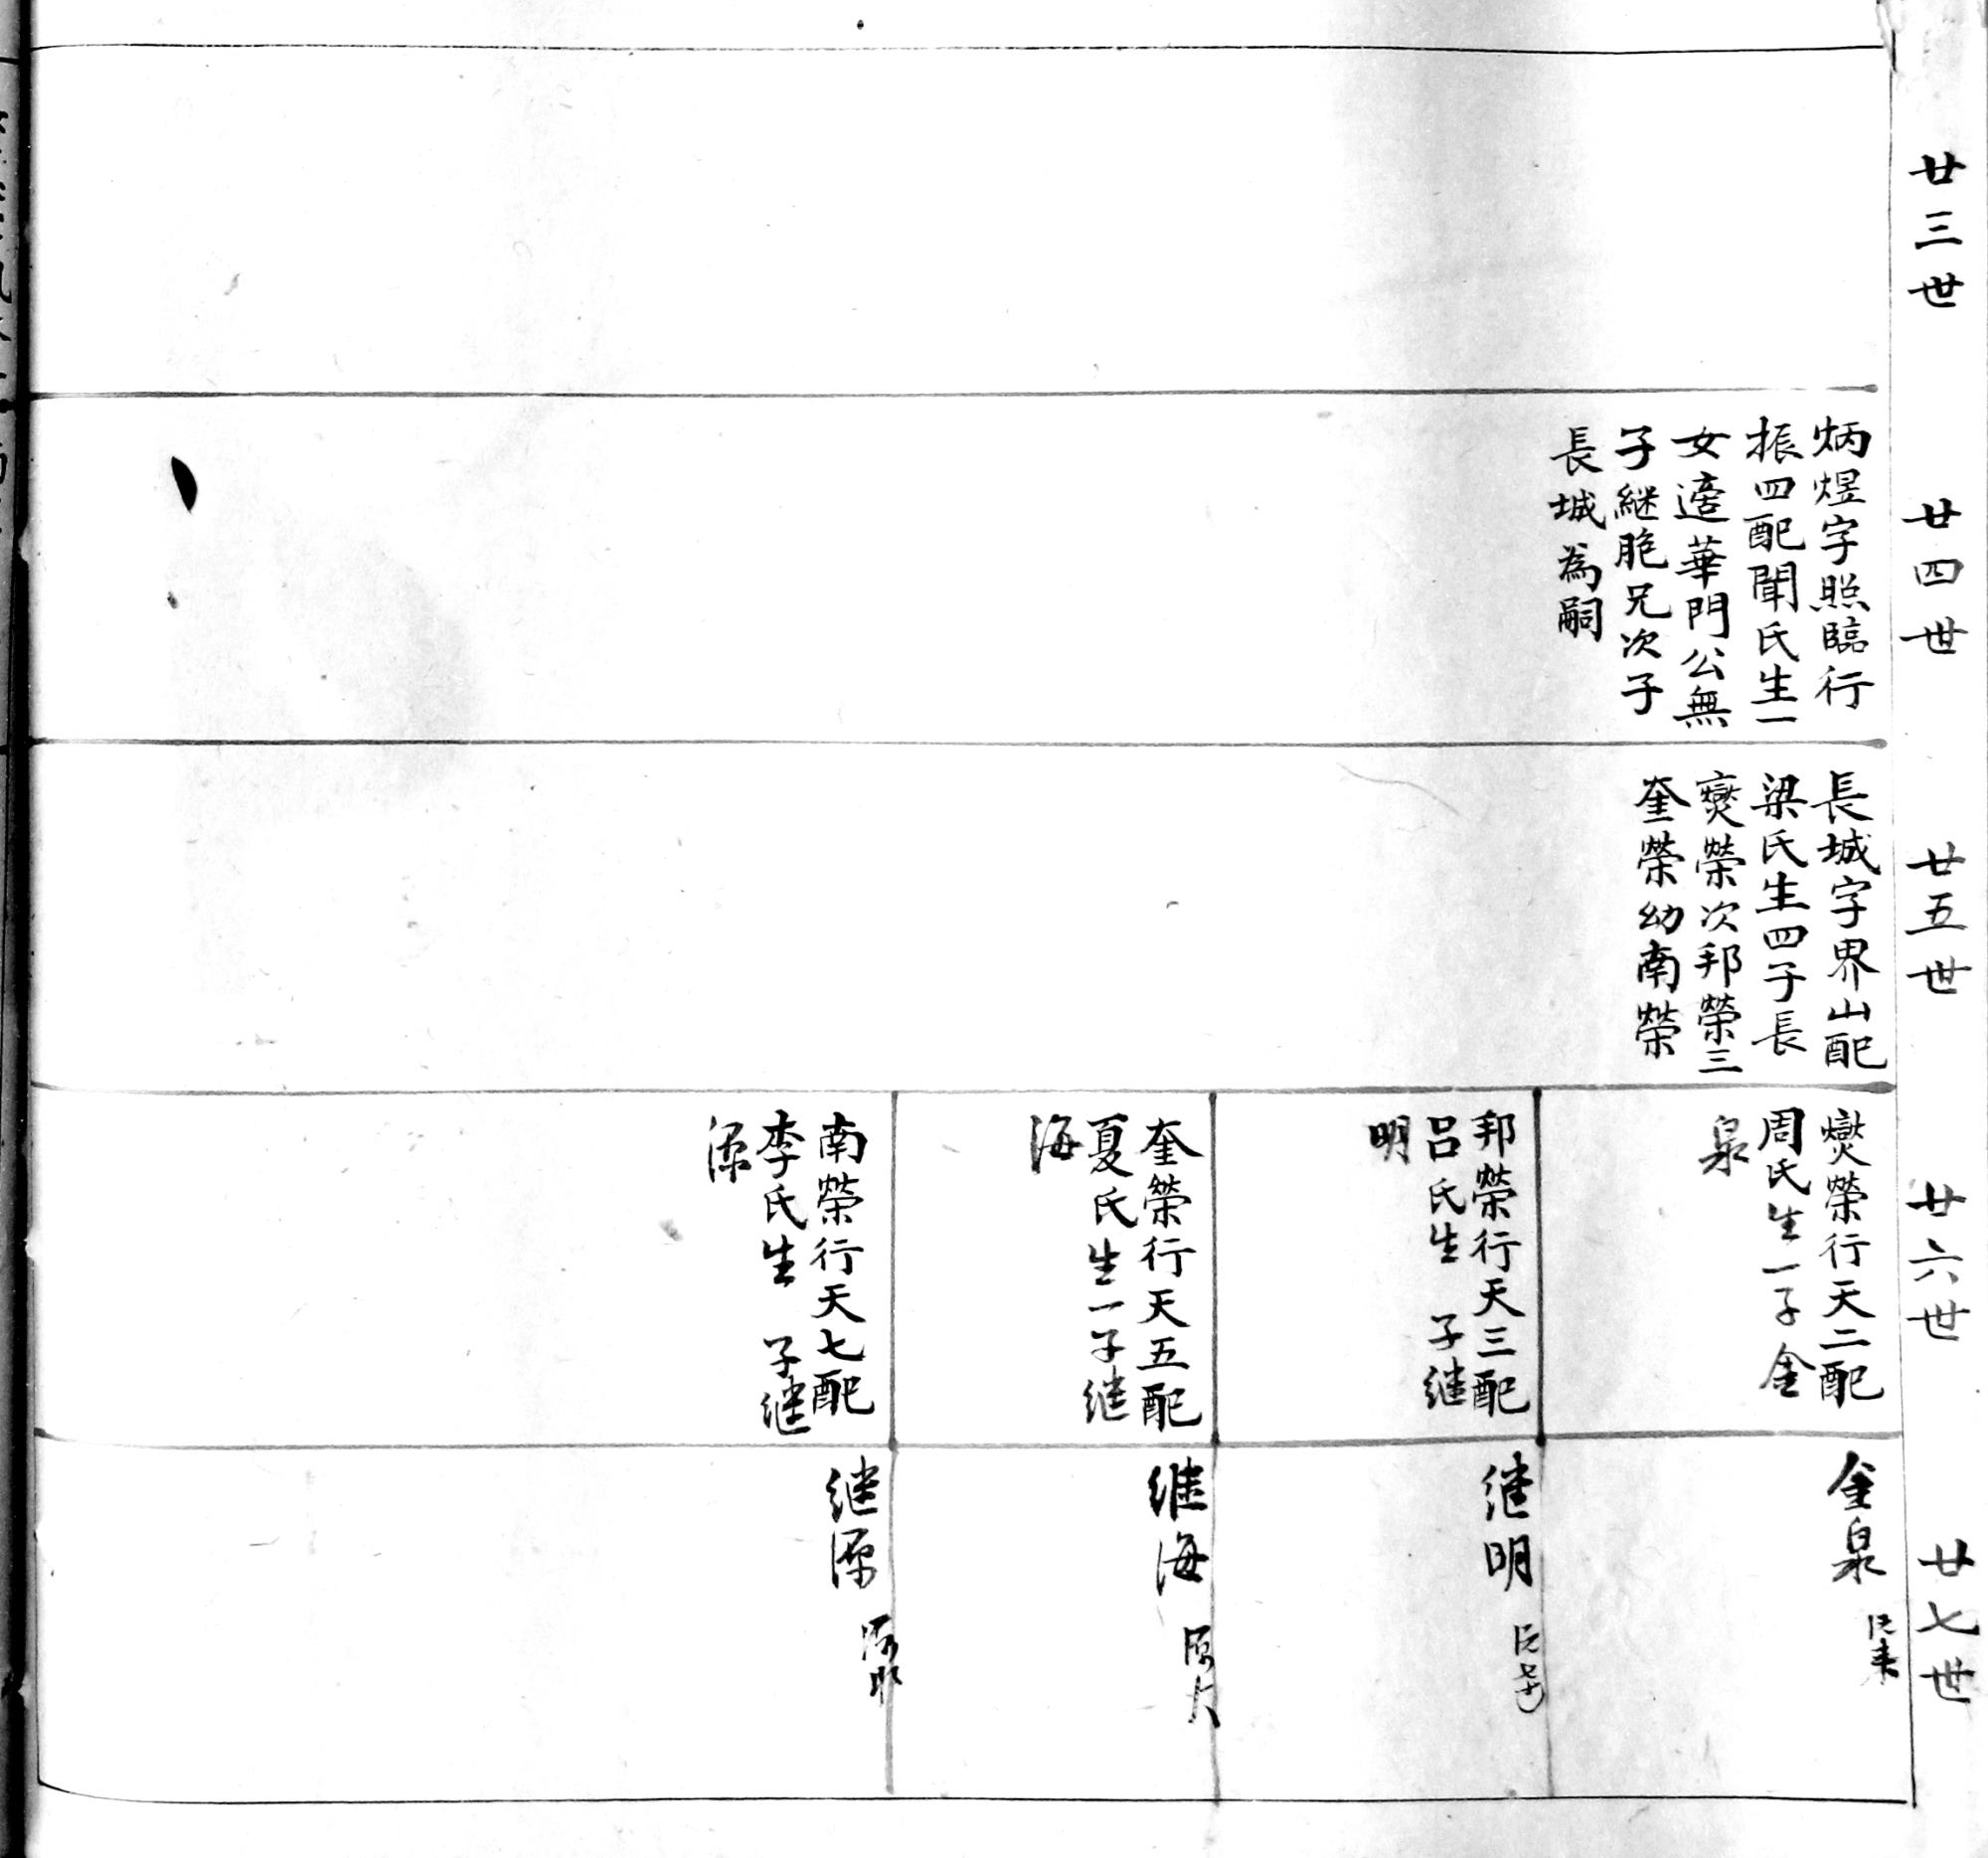 廿三世
廿四世
炳煜字照臨行
振四配聞氏生一
女適華門公無
子継胞兄次子
長城為嗣
廿五世
長城字界山配
梁氏生四子長
爕榮次邦榮三
奎榮幼南榮
廿六世
爕榮行天二配
周氏生一子金
泉
邦榮行天三配
吕氏生 子继
明
奎榮行天五配
夏氏生一子继
海
南榮行天七配
李氏生 子继
源
廿七世
金泉
继明
继海
继源